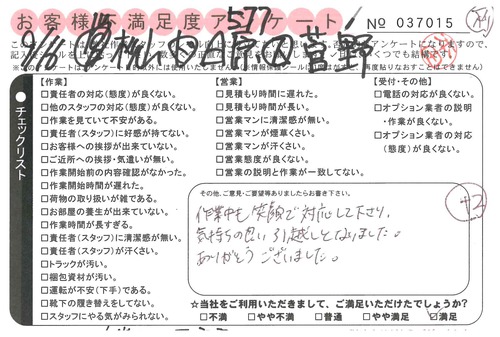 お客様不満足度アンケート
577
No 037015
チェックリスト
【作業】
□責任者の対応(態度)が良くない。
□他のスタッフの対応(態度)が良くない。
□作業を見ていて不安がある。
□責任者(スタッフ)に好感が持てない。
□お客様への挨拶が出来ていない。
□ご近所への挨拶・気遣いが無い。
□作業開始前の内容確認がなかった。
□作業開始時間が遅れた。
□荷物の取り扱いが雑である。
□お部屋の養生が出来ていない。
□作業時間が長すぎる。
□責任者(スタッフ)に清潔感が無い。
□責任者(スタッフ)が汗くさい。
□トラックが汚い。
□梱包資材が汚い。
□運転が不安(下手)である。
□靴下の履き替えをしてない。
□スタッフにやる気がみられない。
【営業】
□見積もり時間に遅れた。
□見積もり時間が長い。
□営業マンに清潔感が無い。
□営業マンが煙草くさい。
□営業マンが汗くさい。
□営業態度が良くない。
□営業の説明と作業が一致してない。
【受付・その他】
□電話の対応が良くない。
□オプション業者の説明
・作業が良くない。
□オプション業者の対応
(態度)が良くない。
その他、ご意見・ご要望等ありましたらお書き下さい。
作業中も笑顔で対応して下さり、
気持ちの良い引越しとなりました。
ありがとうございました。
☆当社をご利用いただきまして、ご満足いただけたでしょうか?
□不満 □やや不満 □普通 □やや満足 ☑満足